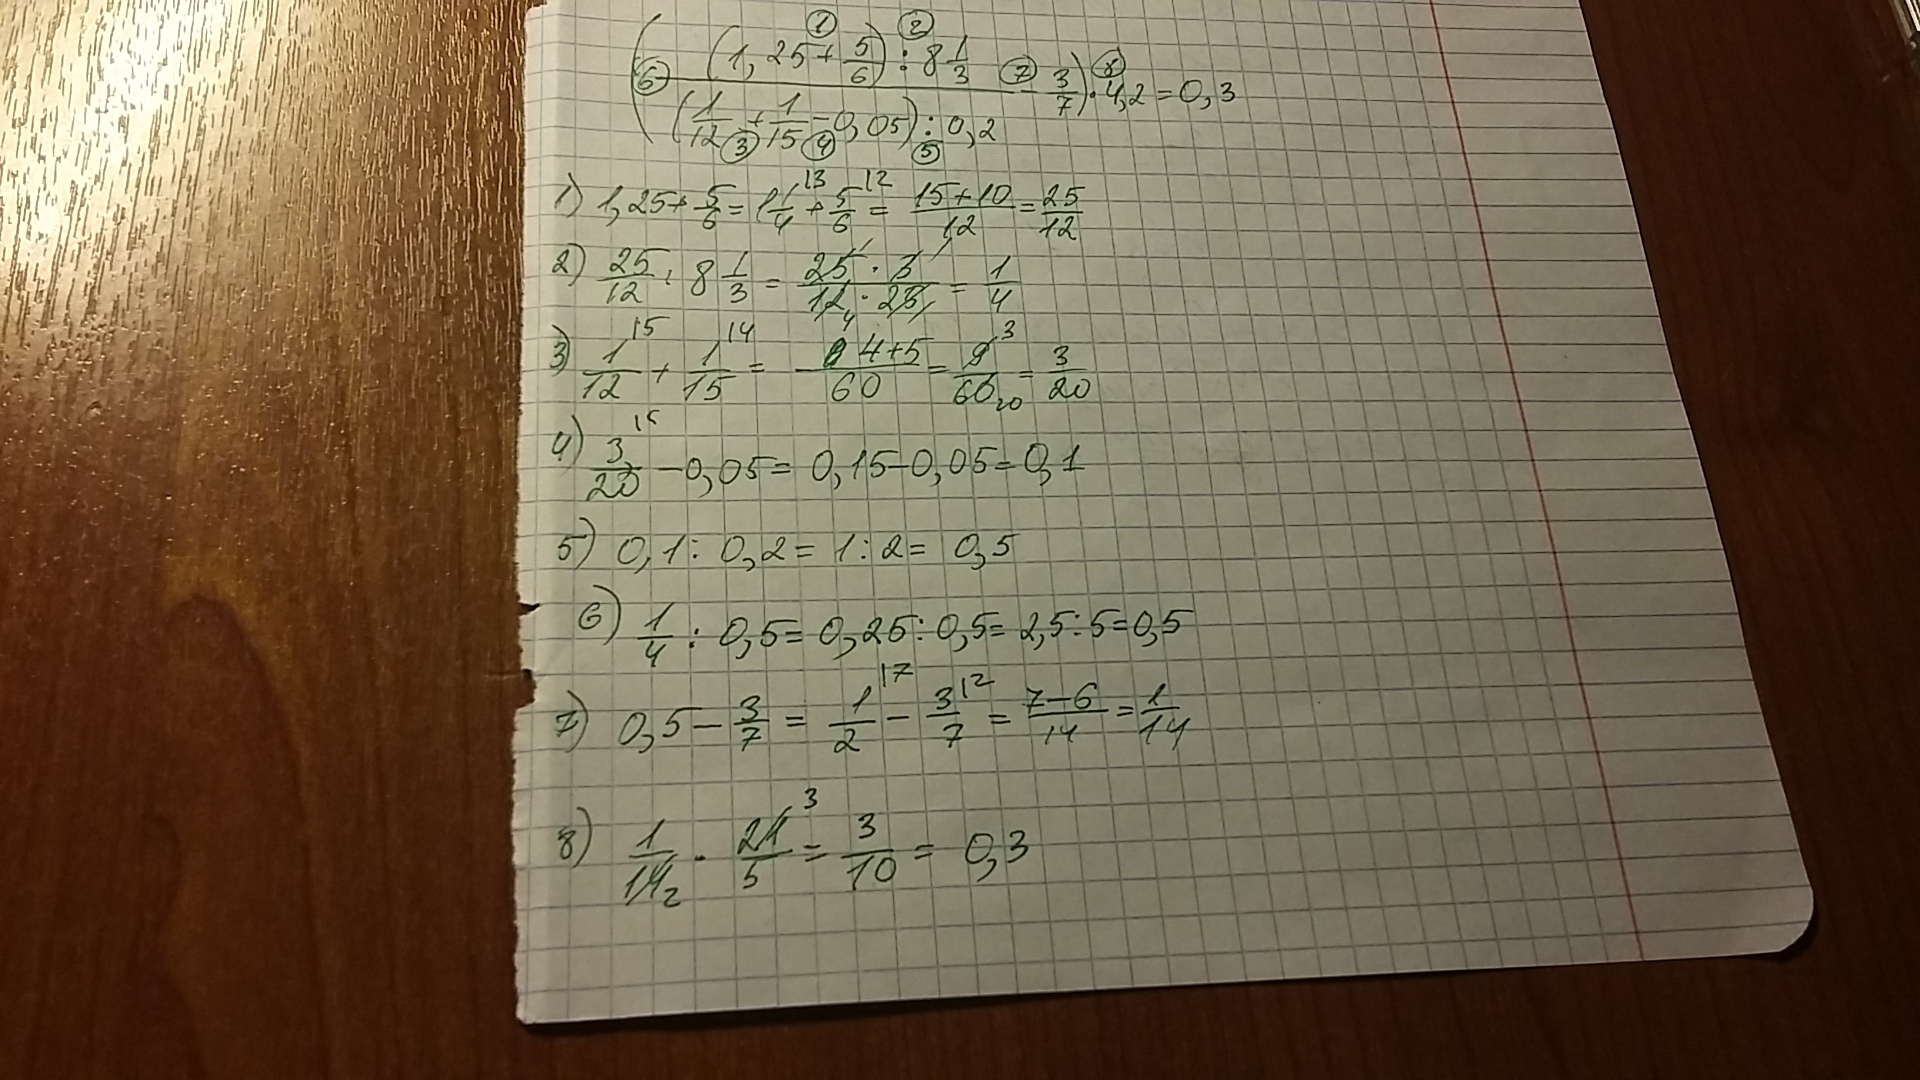 ( ((1,25 + 5/6) : 8 1/3) / ((1/12 + 1/15 - 0,05) : 0,2) - 3/7 ) · 4,2 = 0,3
1) 1,25 + 5/6 = 1 1/4 + 5/6 = (15+10)/12 = 25/12
2) 25/12 : 8 1/3 = (25 · 3)/(12 · 25) = 1/4
3) 1/12 + 1/15 = (4+5)/60 = 9/60 = 3/20
4) 3/20 - 0,05 = 0,15 - 0,05 = 0,1
5) 0,1 : 0,2 = 1 : 2 = 0,5
6) 1/4 : 0,5 = 0,25 : 0,5 = 2,5 : 5 = 0,5
7) 0,5 - 3/7 = 1/2 - 3/7 = (7-6)/14 = 1/14
8) 1/14 · 21/5 = 3/10 = 0,3